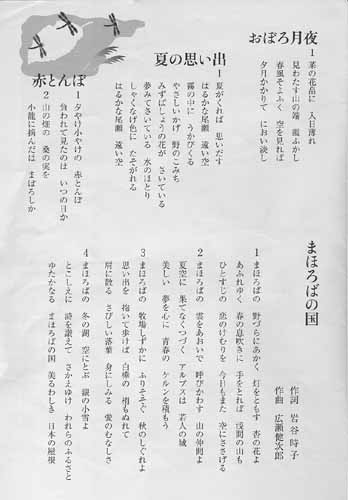 おぼろ月夜
1 菜の花畠に 入日薄れ
見わたす山の端 霞ふかし
春風そよふく 空を見れば
夕月かかりて におい淡し
夏の思い出
1 夏がくれば 思いだす
はるかな尾瀬 遠い空
霧の中に うかびくる
やさしいかげ 野のこみち
みずばしょうの花が さいている
夢みてさいている 水のほとり
しゃくなげ色に たそがれる
はるかな尾瀬 遠い空
赤とんぼ
1 夕やけ小やけの 赤とんぼ
負われて見たのは いつの日か
2 山の畑の 桑の実を
小籠に摘んだは まぼろしか
まほろばの国
作詞 岩谷時子
作曲 広瀬健次郎
1 まほろばの 野づらにあかく 灯をともす 杏の花よ
あふれゆく 春の息吹きに 手をとれば 浅間の山も
ひとすじの 恋のけむりを 今日もまた 空にささげる
2 まほろばの 雲をあおいで 呼びかわす 山の仲間よ
夏空に 果てなくつづく アルプスは 若人の城
美しい 夢を心に 青春の ケルンを積もう
3 まほろばの 牧場しずかに ふりそそぐ 秋のしぐれよ
思い出を 抱いて歩けば 白樺の 梢もぬれて
肩に散る さびしい落葉 身にしみる 愛のむなしさ
4 まほろばの 冬の湖 空にとぶ 銀の小雪よ
とこしえに 詩を讃えて さかえゆけ われらのふるさと
ゆたかなる まほろばの国 美るわしき 日本の屋根